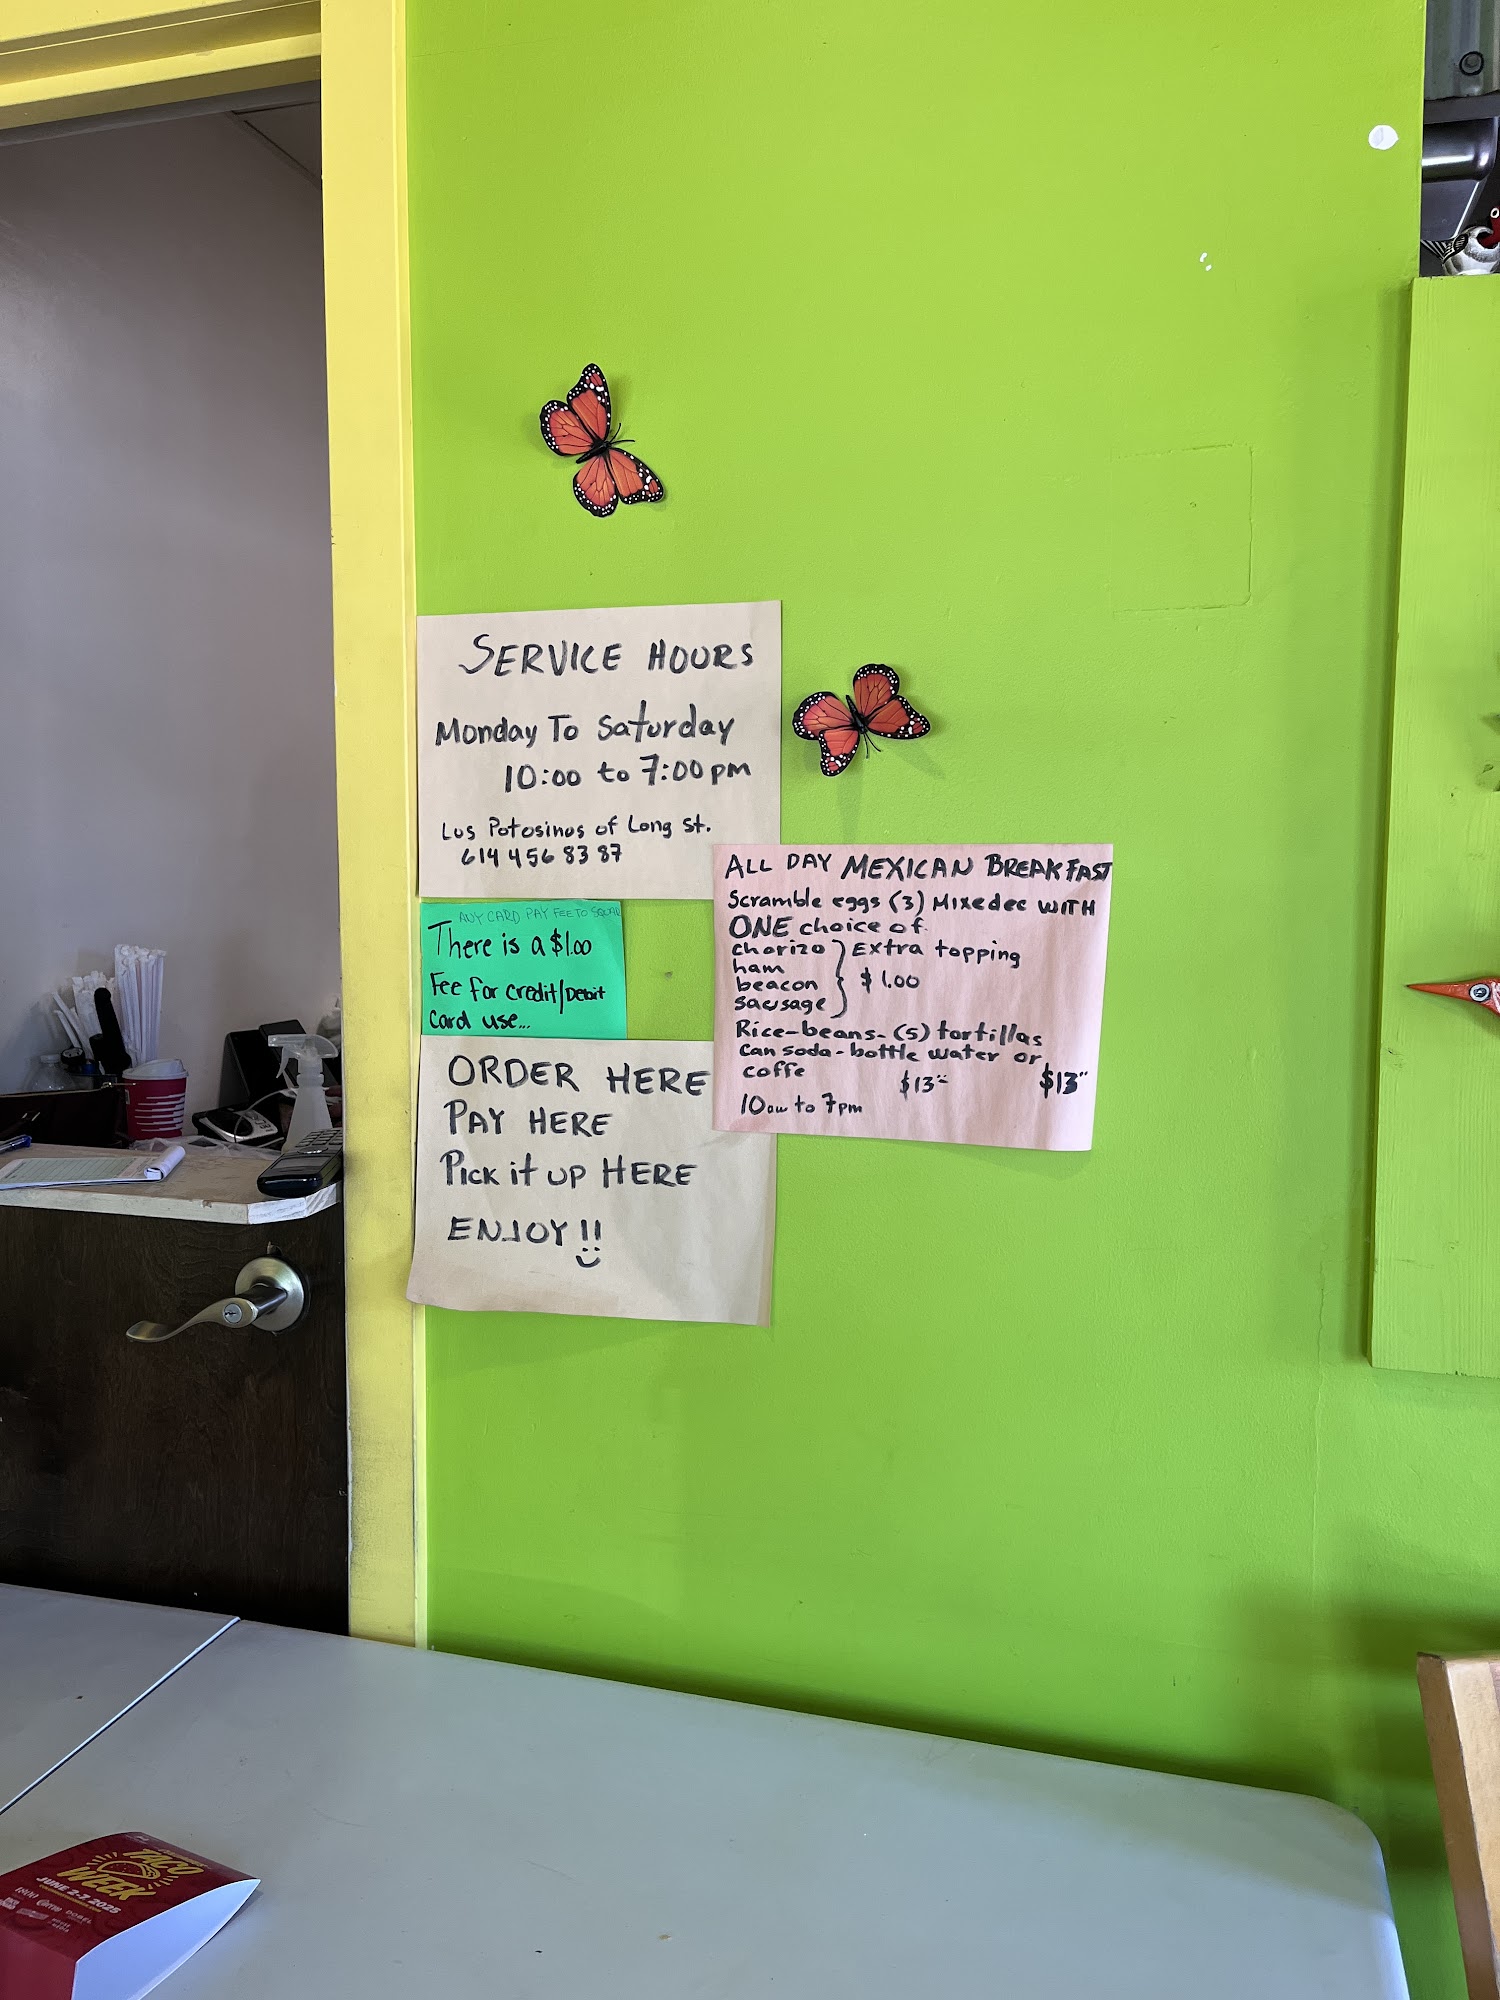 SERVICE HOURS
Monday To Saturday
10:00 to 7:00 pm
Los Potosinos of Long St.
614 456 83 87
ANY CARD PAY FEE TO SQUAR
There is a $1.00
Fee for credit/Debit
Card use...
ORDER HERE
PAY HERE
Pick it up HERE
ENJOY!!
ALL DAY MEXICAN BREAKFAST
Scramble eggs (3) Mixedec WITH
ONE choice of
chorizo Extra topping
ham
beacon $1.00
sausage
Rice-beans-(5) tortillas
can soda-bottle water or
coffe
$13 $13
10am to 7pm
TACO
WEEK
JUNE 2-7 2025